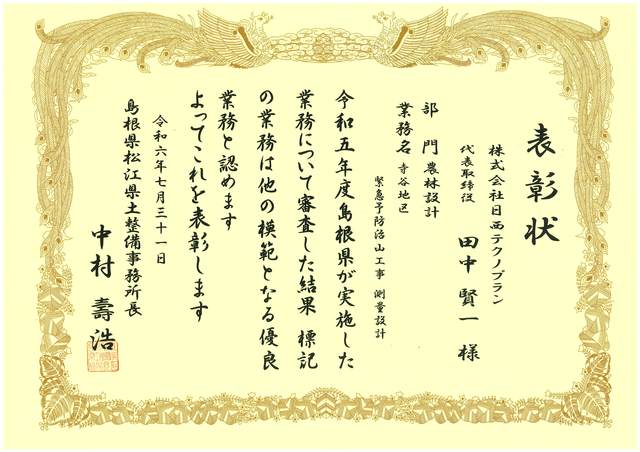 表彰状
株式会社日西テクノプラン
代表取締役 田中賢一様
部門 農林設計
業務名 寺谷地区
緊急予防治山工事 測量設計
令和五年度島根県が実施した
業務について審査した結果 標記
の業務は他の模範となる優良
業務と認めます
よってこれを表彰します
令和六年七月三十一日
島根県松江県土整備事務所長
中村壽浩